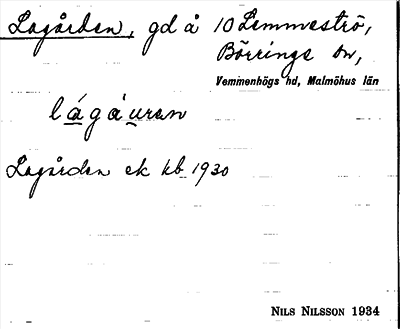 Lagården, gd å 10 Lemmeströ,
Börringe sn,
Vemmenhögs hd, Malmöhus län
lágåuren
Lagården ek kb 1930
NILS NILSSON 1934